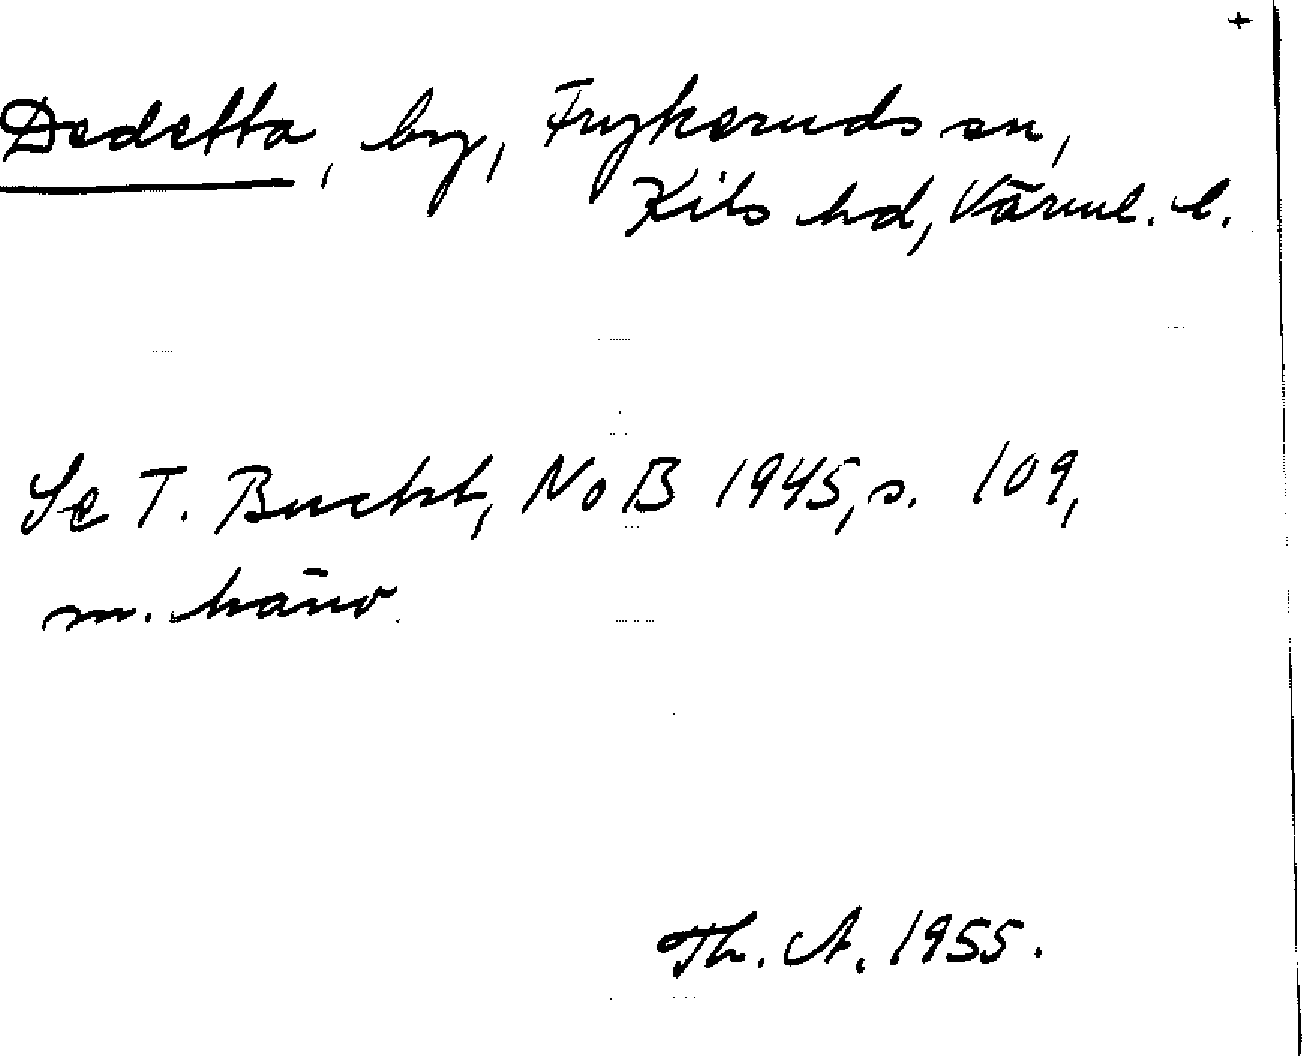 +
Dedetta, by, Frykeruds sn,
Kils hd, Värml. l.
Se T. Bucht, NoB 1945, s. 109,
m. hänv.
Th. A. 1955.